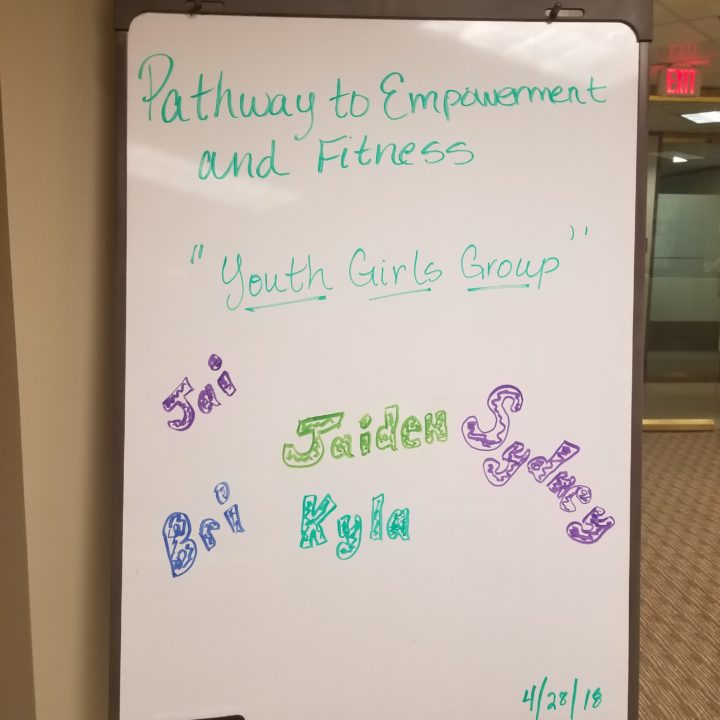 Pathway to Empowerment
and Fitness
"Youth Girls Group"
Jai
Jaiden
Sydney
Bri
Kyla
4/28/18
EXIT